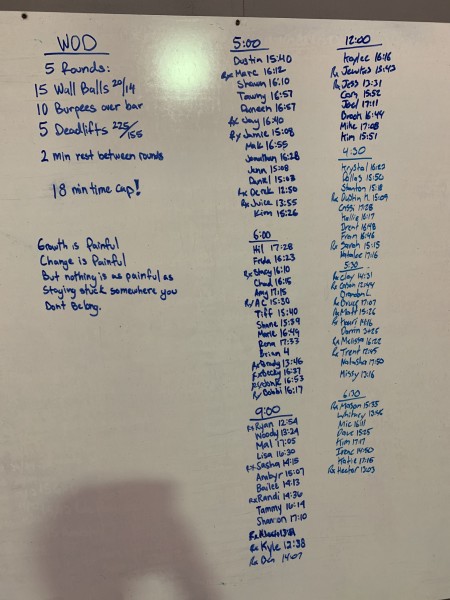 WOD
5 Rounds:
15 Wall Balls 20/14
10 Burpees over bar
5 Deadlifts 225/155
2 min rest between rounds
18 min time cap!
Growth is Painful
Change is Painful
But nothing is as painful as
Staying stuck somewhere you
Dont Belong.
5:00
Dustin 15:40
Rx Marc 16:12
Shawn 16:10
Tawny 16:57
16:57
Rx Jay 16:40
Rx Jamie 15:08
Mak 16:55
Jonathan 16:28
Jenn 15:08
Daniel 15:03
Rx Derek 12:50
Rx Juice 13:55
Kim 15:26
6:00
Hil 17:28
Felda 16:23
Rx Stacy 16:10
Chad 16:15
Amy 17:15
Rx AC 15:30
Tiff 15:40
Shane 15:59
Marie 16:49
Rena 17:33
Brian 4
Brady 13:46
Rx Becky 16:37
16:53
Rx Bobbi 16:17
9:00
Rx Ryan 12:54
Woody 13:24
Mal 17:05
Lisa 16:30
Rx Sasha 14:15
Ambyr 15:07
Bailee 14:13
Rx Randi 14:36
Tammy 16:14
Shannon 17:10
Rx
Rx Kyle 12:38
Rx Dan 14:07
12:00
Kaylee 16:16
Rx 15:43
Rx Jess 13:31
Cam 15:52
Joel 17:11
16:44
Mike 17:08
Kim 15:51
4:30
Krystal
Dallas 15:50
Stanton 15:18
Rx Dustin M. 15:09
Cassi 17:28
Kallie 16:17
Brent 16:48
Fran 16:46
Rx Sarah 15:15
Natalee 17:16
5:30
Rx Clay 14:31
Rx 12:44
Brandon L
Rx Bruce 17:07
Rx Matt 15:26
Rx 14:16
Darrin
Rx Melissa 16:22
Rx Trent 12:45
Natasha 17:50
Missy 13:16
6:30
Rx Mason 15:35
Whitney 13:46
Mic 16:11
Dave 15:25
Kim 17:17
Irene 14:50
Katie 17:15
Rx Hector 13:03